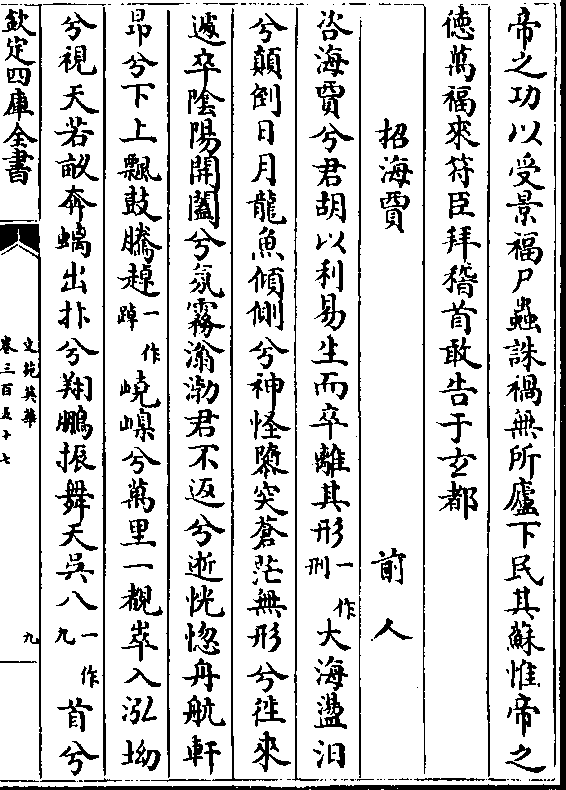 帝之功以受景福尸蟲誅禍無所廬下民其蘇惟帝之
德萬福來符臣拜稽首敢告于玄都
招海賈 前人
咨海賈兮君胡以利易生而卒離其形一作刑大海盪汨
兮顛倒日月龍魚傾側兮神怪隳突蒼茫無形兮往來
遽卒陰陽開闔兮氛霧滃渤君不返兮逝恍惚舟航軒
昂兮下上飄鼓騰趠一作踔嶢嵲兮萬里一覩崒入泓坳
兮視天若畝奔螭出抃兮翔鵬振舞天吳八一作九首兮
欽定四庫全書
文苑英華
卷三百五十七
九